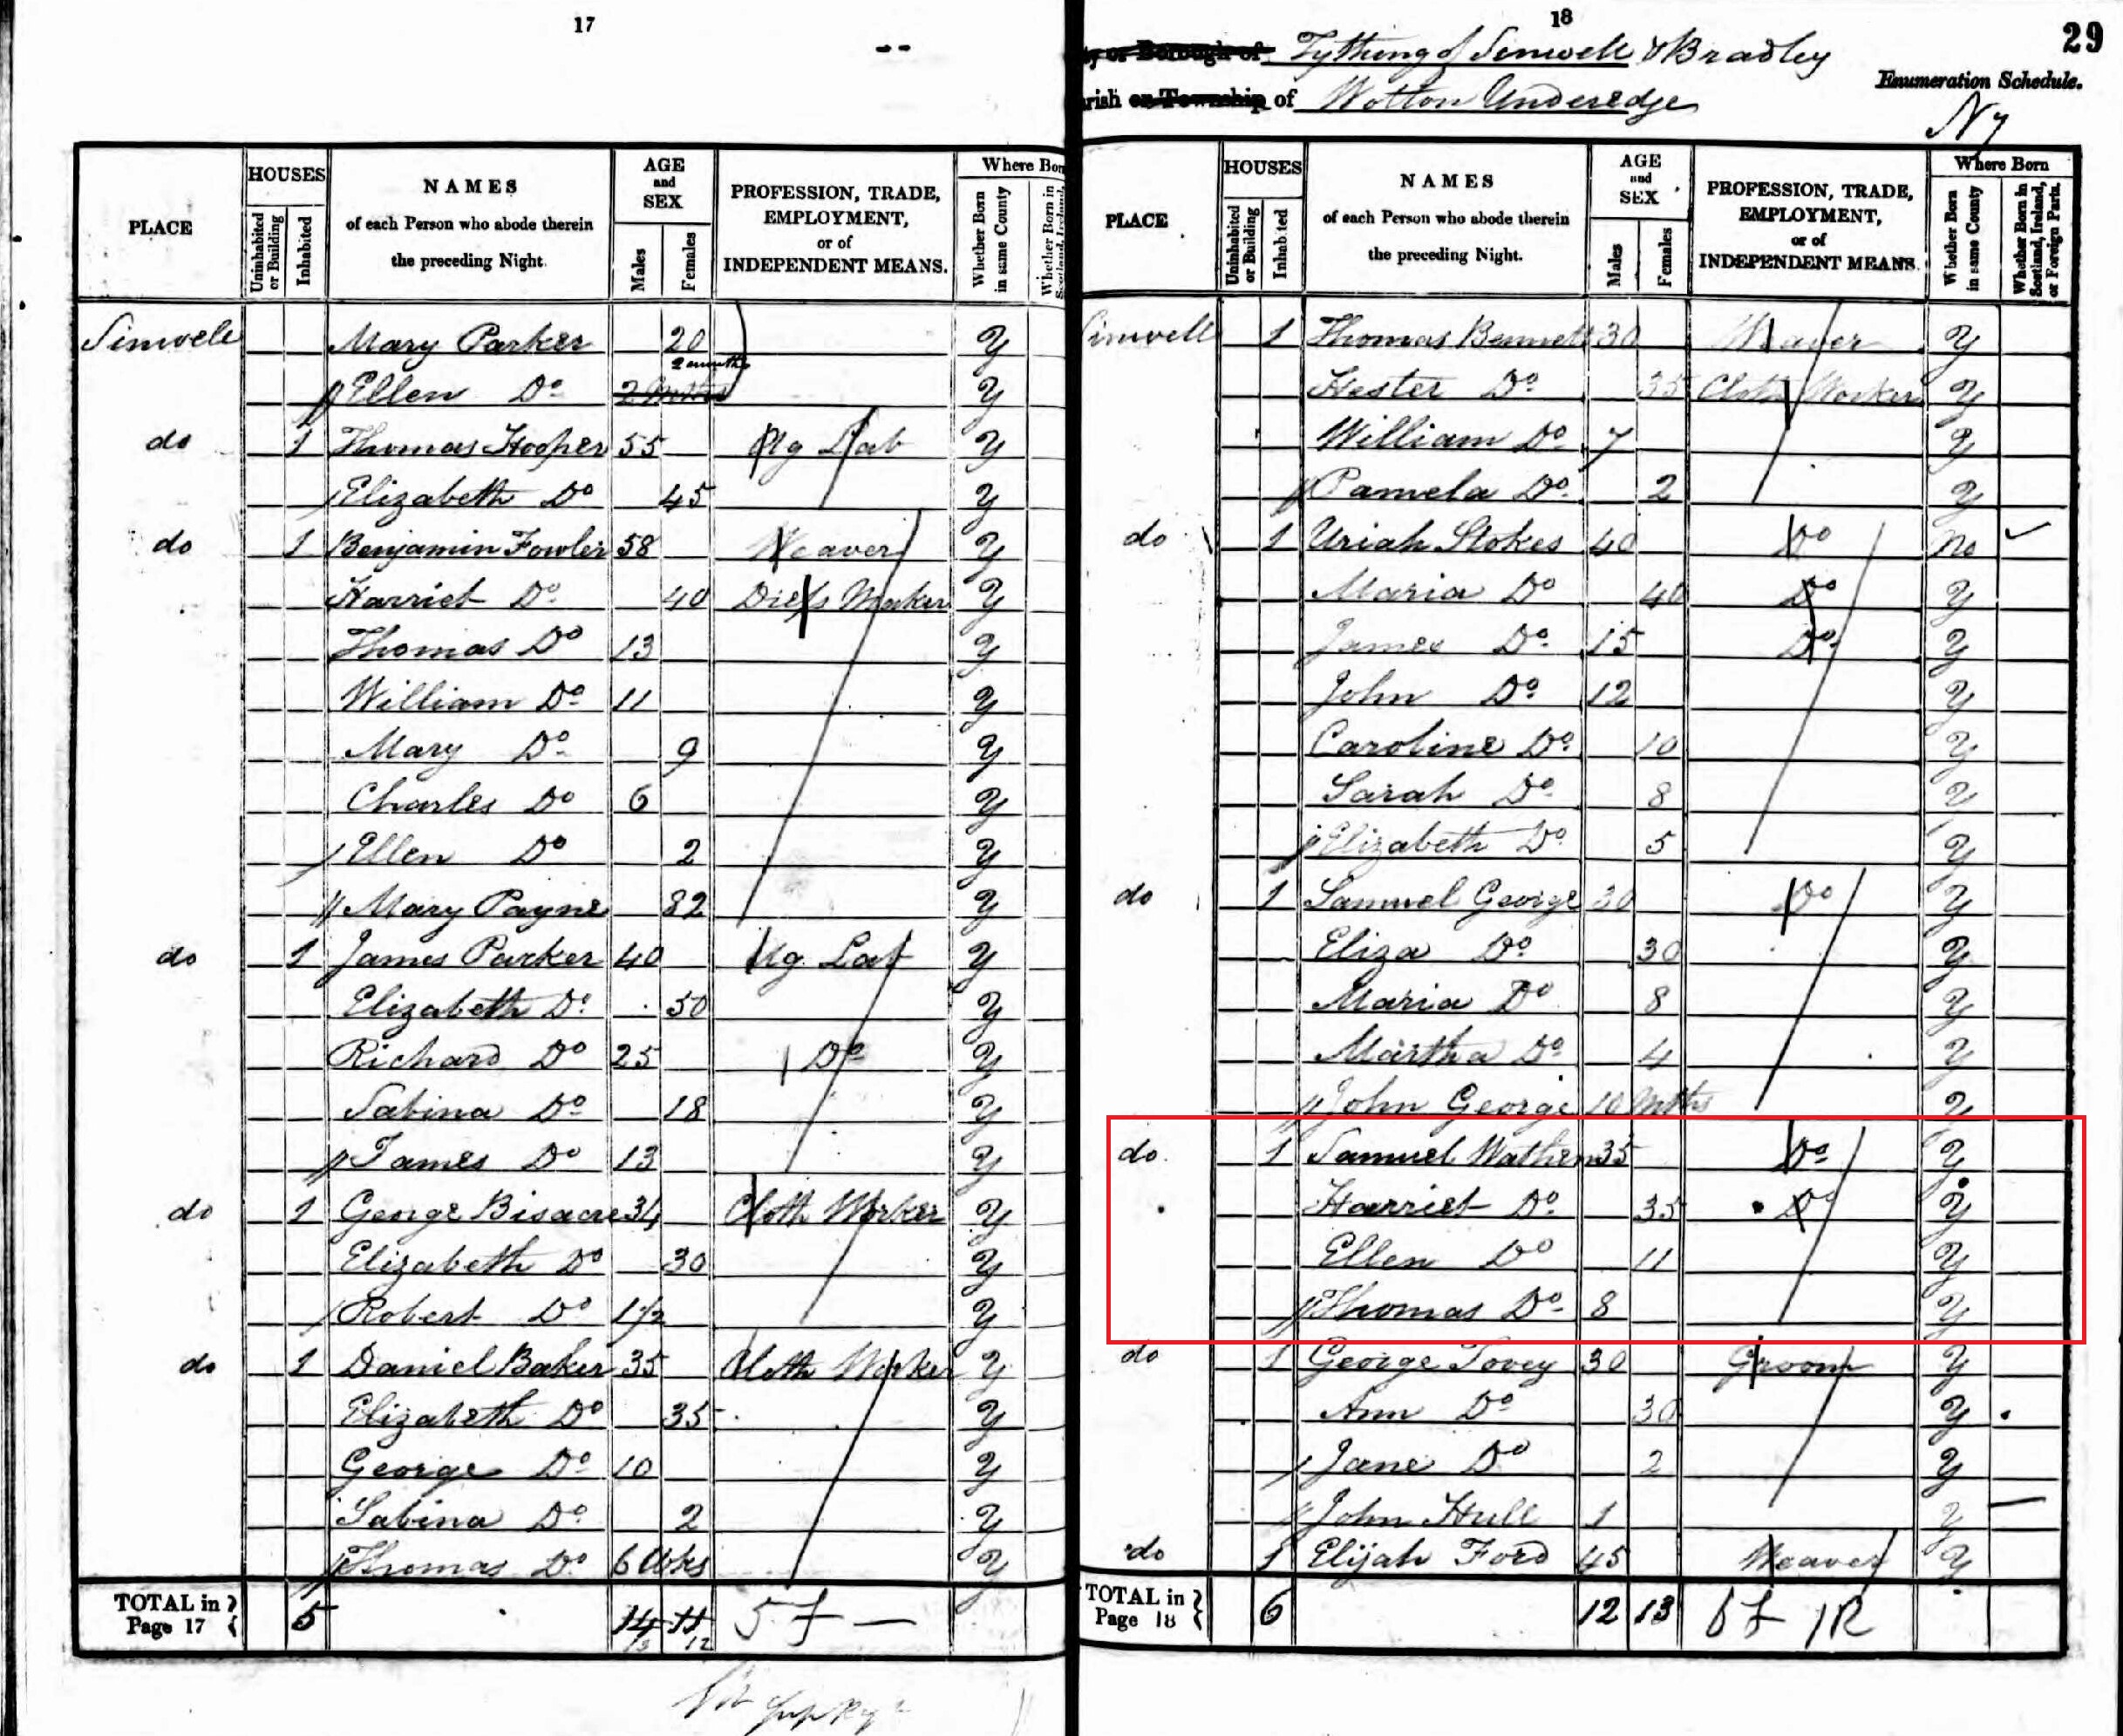 17
PLACE
HOUSES
Uninhabited or Building
Inhabited
NAMES
of each Person who abode therein
the preceding Night.
AGE
and
SEX
Males
Females
PROFESSION, TRADE,
EMPLOYMENT,
or of
INDEPENDENT MEANS.
Where Bor
Whether Born in same County
Whether Born in
Sinwell Mary Parker 20 Y
2 months
Ellen Do 2 Mths Y
do 1 Thomas Hooper 55 Ag Lab Y
Elizabeth Do 45 Y
do 1 Benjamin Fowler 58 Weaver Y
Harriet Do 40 Dress Maker Y
Thomas Do 13 Y
William Do 11 Y
Mary Do 9 Y
Charles Do 6 Y
Ellen Do 2 Y
Mary Payne 82 Y
do 1 James Parker 40 Ag Lab Y
Elizabeth Do 50 Y
Richard Do 25 Do Y
Sabina Do 18 Y
James Do 13 Y
do 1 George Bisacre 34 Cloth Worker Y
Elizabeth Do 30 Y
Robert Do 1½ Y
do 1 Daniel Baker 35 Cloth Worker Y
Elizabeth Do 35 Y
George Do 10 Y
Sabina Do 2 Y
Thomas Do 6 Wks Y
TOTAL in Page 17 5 14 11 5 f
12
18
29
ty or Borough of Tything of Sinwell & Bradley
Enumeration Schedule.
rish or Township of Wotton Underedge
N 7
PLACE
HOUSES
Uninhabited or Building
Inhabited
NAMES
of each Person who abode therein
the preceding Night.
AGE
and
SEX
Males
Females
PROFESSION, TRADE,
EMPLOYMENT,
or of
INDEPENDENT MEANS.
Where Born
Whether Born in same County
Whether Born in Scotland, Ireland, or Foreign Parts.
Sinwell 1 Thomas Bennett 30 Weaver Y
Hester Do 35 Cloth Worker Y
William Do 7 Y
Pamela Do 2 Y
do 1 Uriah Stokes 40 Do No
Maria Do 40 Do Y
James Do 15 Do Y
John Do 12 Y
Caroline Do 10 Y
Sarah Do 8 Y
Elizabeth Do 5 Y
do 1 Samuel George 30 Do Y
Eliza Do 30 Y
Maria Do 8 Y
Martha Do 4 Y
John George 10 Mths Y
do 1 Samuel Wathen 35 Do Y
Harriet Do 35 Do Y
Ellen Do 11 Y
Thomas Do 8 Y
do 1 George Tovey 30 Groom Y
Ann Do 30 Y
Jane Do 2 Y
John Hull 1 Y
do 1 Elijah Ford 45 Weaver Y
TOTAL in Page 18 6 12 13 6 f 1R